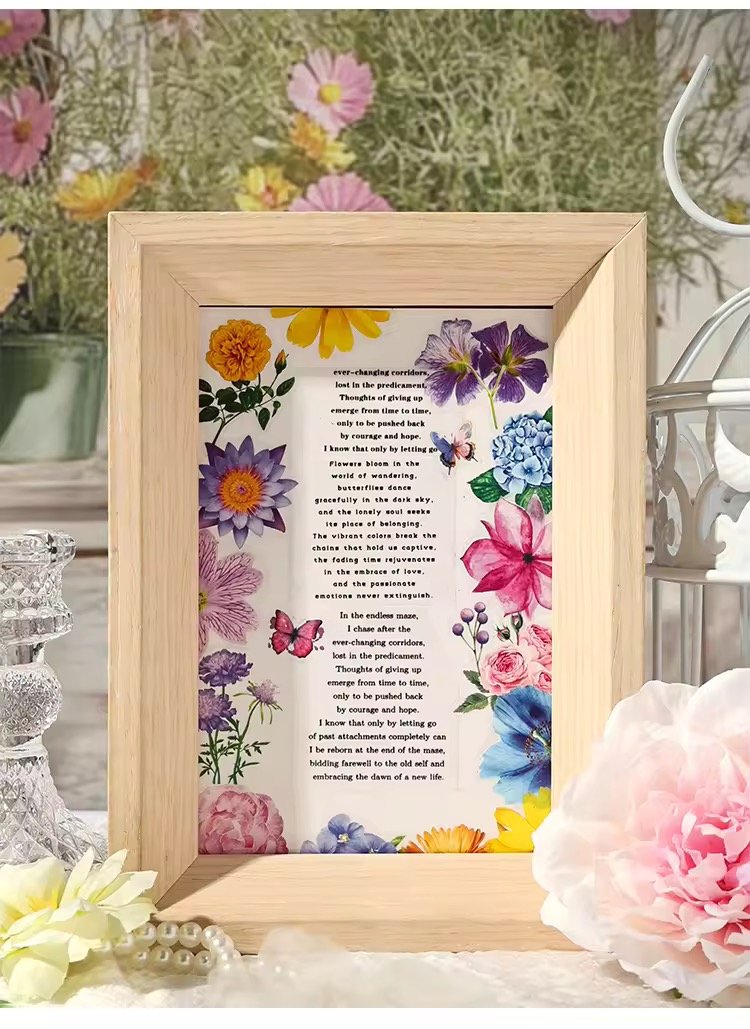 ever-changing corridors,
lost in the predicament.
Thoughts of giving up
emerge from time to time,
only to be pushed back
by courage and hope.
I know that only by letting go
Flowers bloom in the
world of wandering,
butterflies dance
gracefully in the dark sky,
and the lonely soul seeks
its place of belonging.
The vibrant colors break the
chains that hold us captive,
the fading time rejuvenates
in the embrace of love,
and the passionate
emotions never extinguish.
In the endless maze,
I chase after the
ever-changing corridors,
lost in the predicament.
Thoughts of giving up
emerge from time to time,
only to be pushed back
by courage and hope.
I know that only by letting go
of past attachments completely can
I be reborn at the end of the maze,
bidding farewell to the old self and
embracing the dawn of a new life.